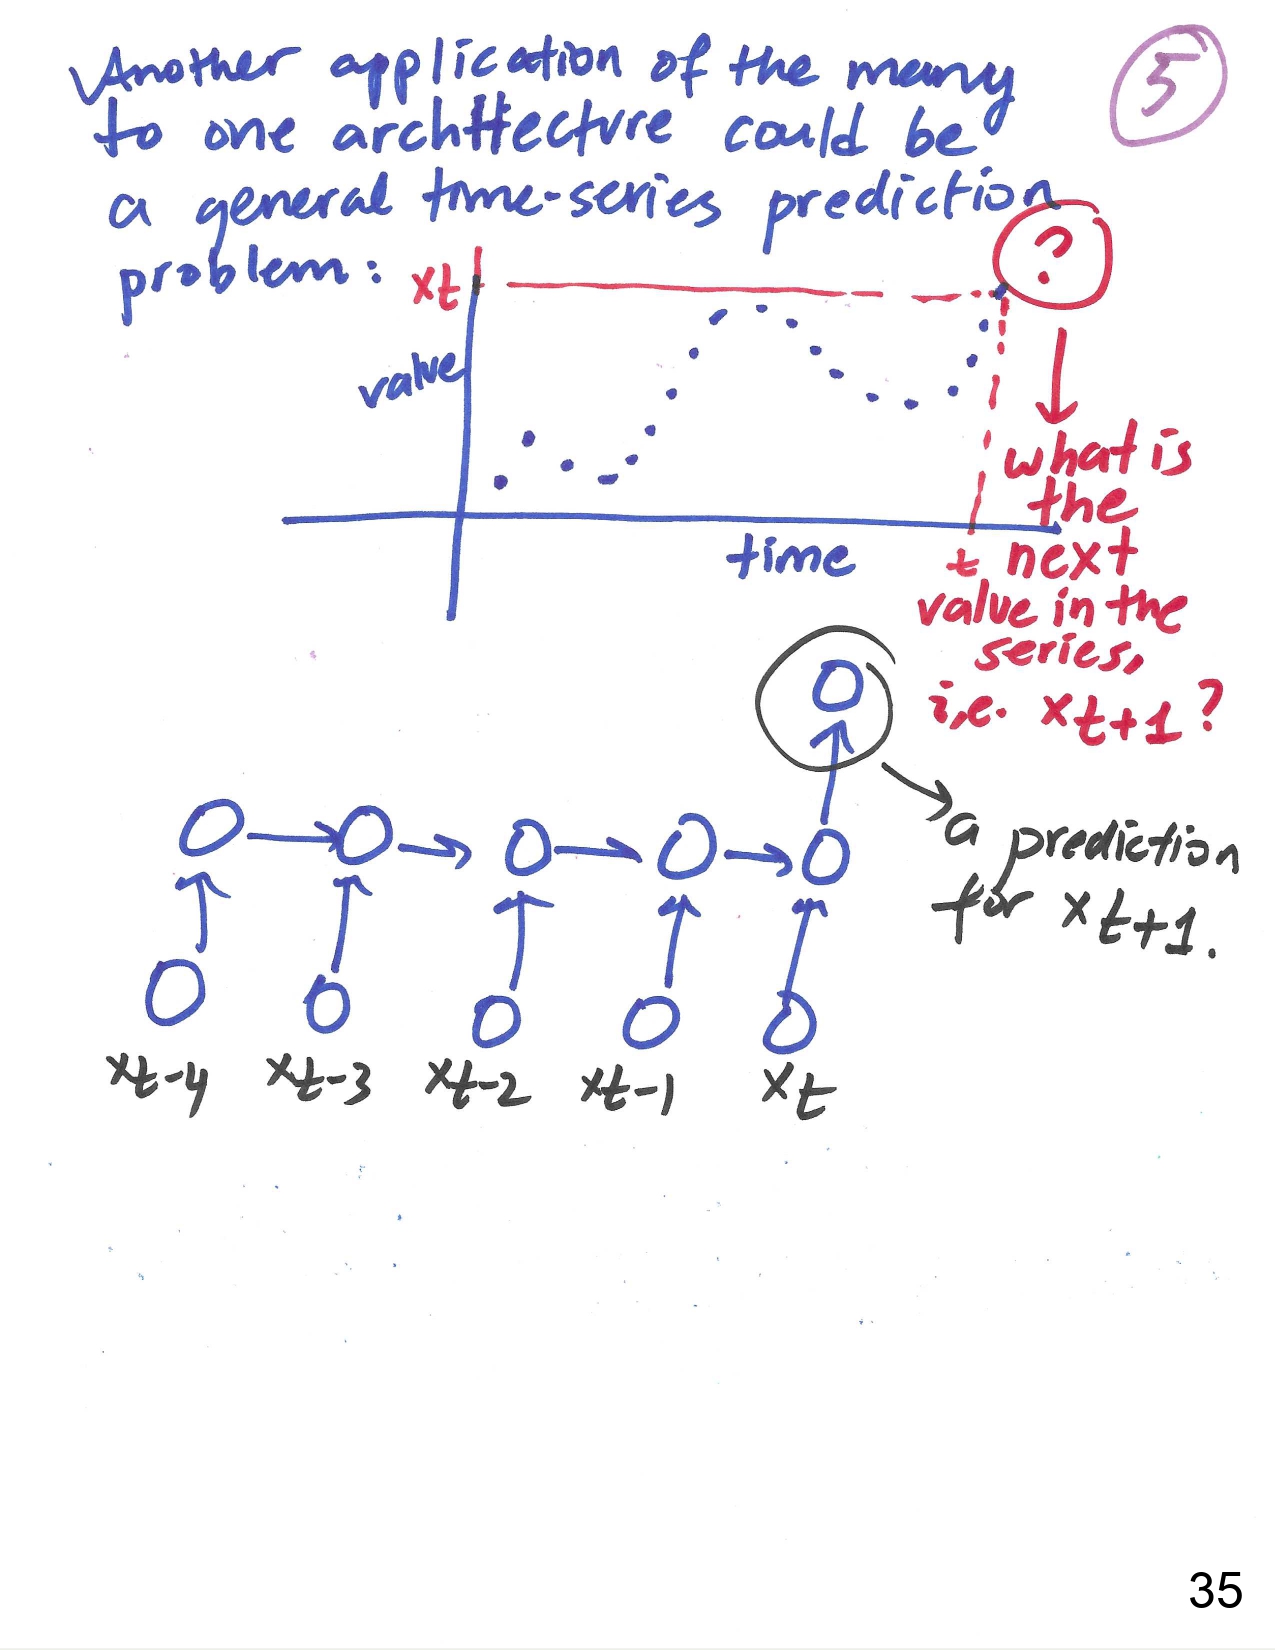 Another application of the many
5
to one architecture could be
a general time-series prediction
problem:
xt
?
value
what is
the
time
t
next
value in the
series,
i.e. xt+1?
a prediction
for xt+1.
xt-4 xt-3 xt-2 xt-1 xt
35